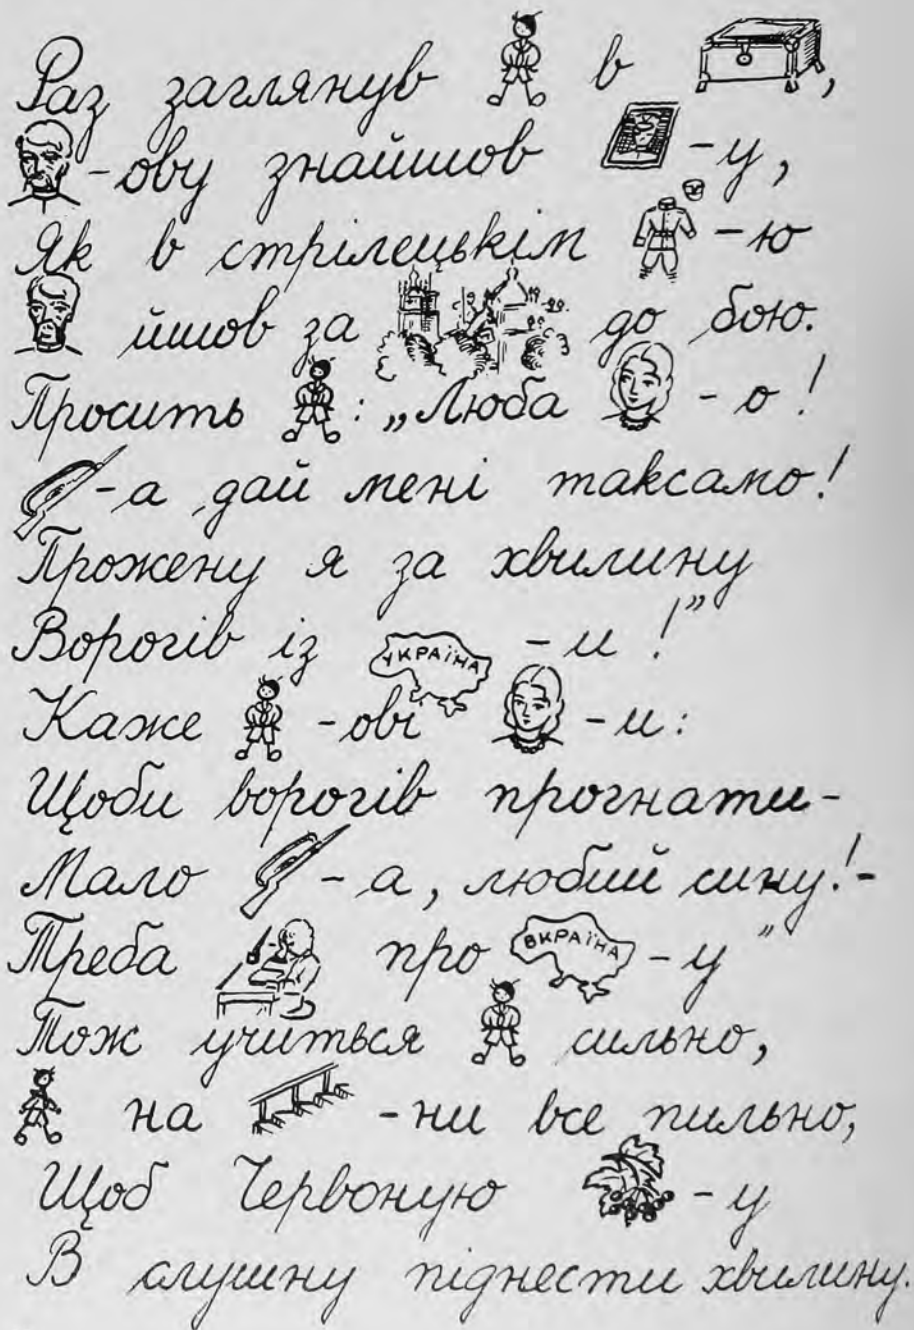 Раз заглянув в ,
-ову знайшов -у,
Як в стрілецькім -ю
йшов за до бою.
Просить : „Люба -о!
-а дай мені таксамо!
Прожену я за хвилину
Ворогів із УКРАЇНА -и!"
Каже -ові -и:
Щоби ворогів прогнати-
Мало -а, любий сину!-
Треба про ВКРАЇНА -у"
Тож учиться сильно,
на -ни все пильно,
Щоб Червоную -у
В слушну піднести хвилину.